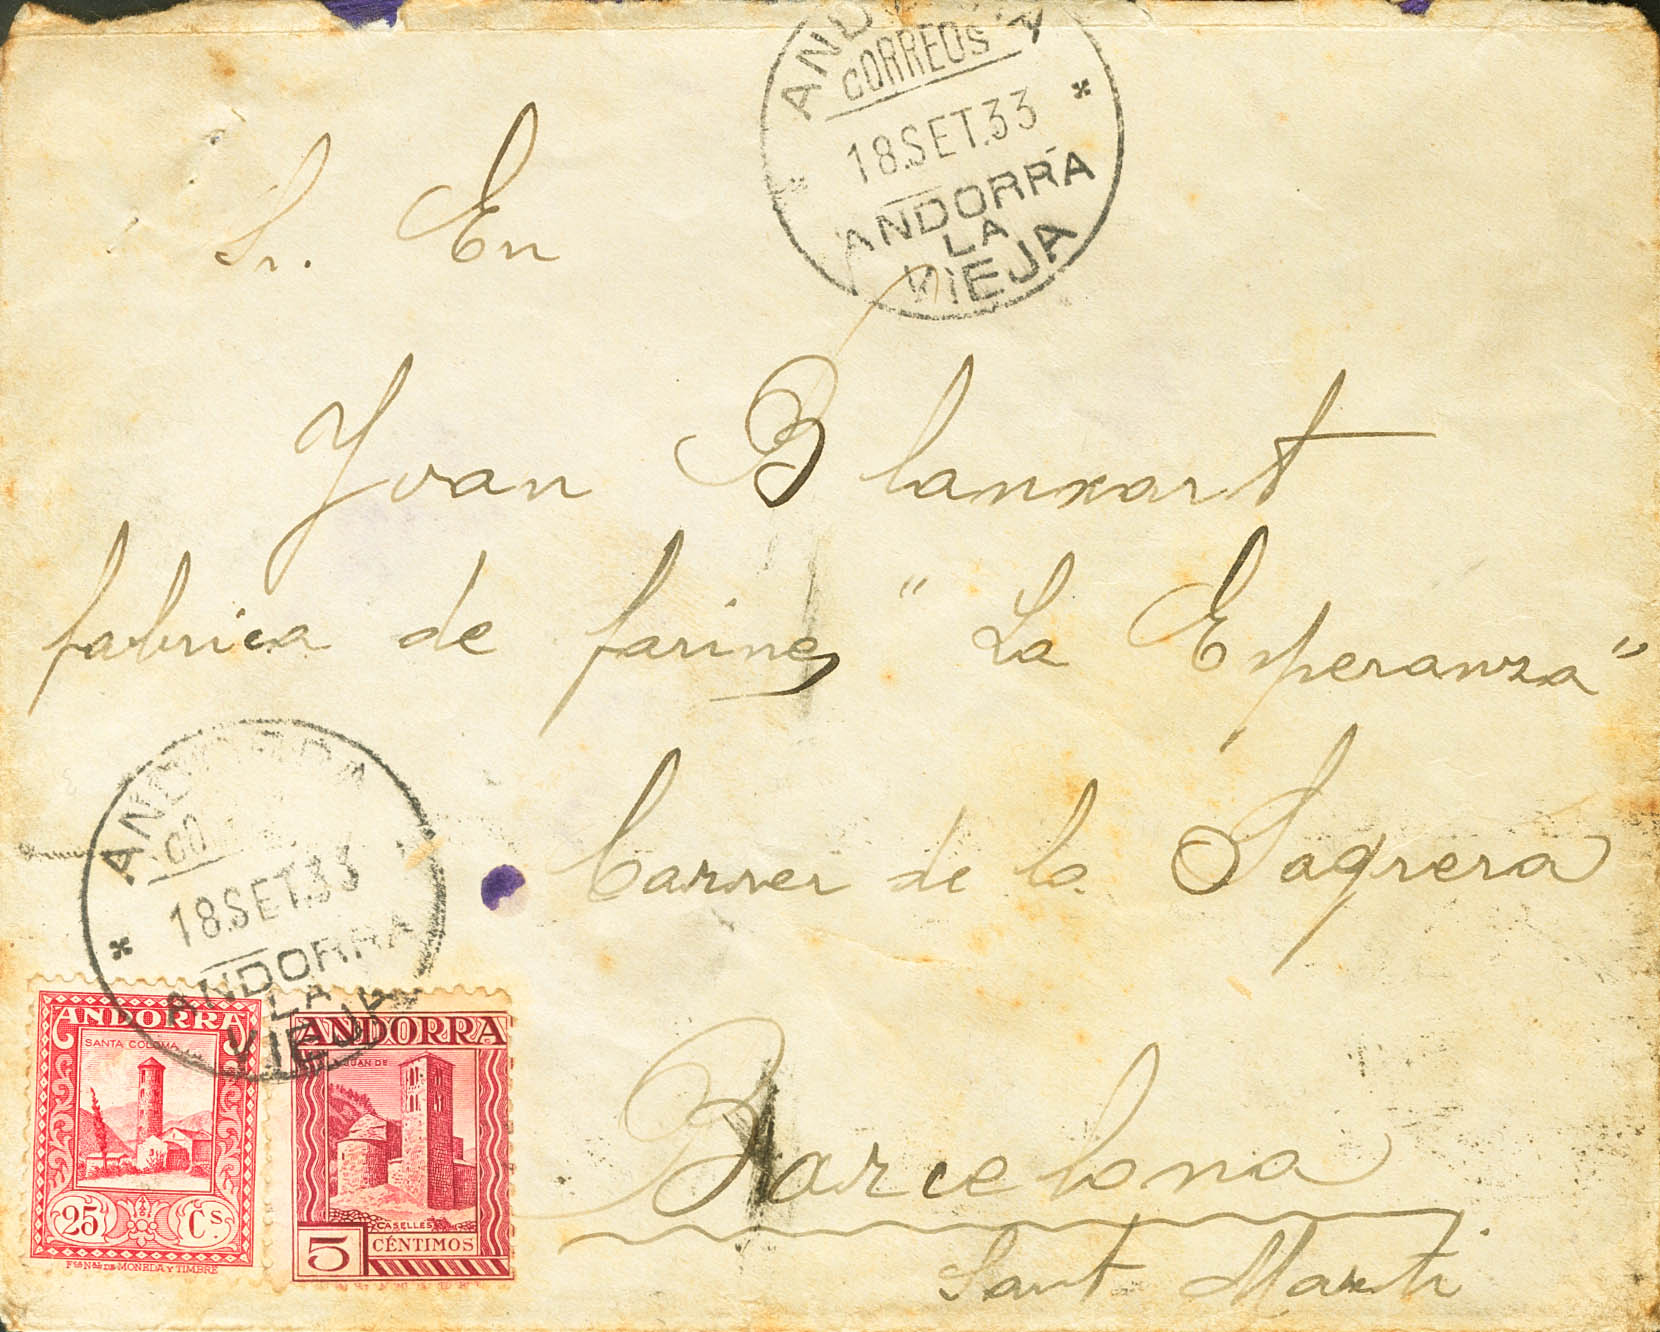 ANDORRA
CORREOS
18.SET.33
ANDORRA
LA
VIEJA
Sr. En
Joan Blanxart
fabrica de farines "La Esperanza"
Carrer de la Sagrera
Barcelona
Sant Marti
ANDORRA
18.SET.33
ANDORRA
LA
VIEJA
ANDORRA
SANTA COLOMA
25 Cs.
Fca Nal DE MONEDA Y TIMBRE
ANDORRA
JUAN DE
CASELLES
5 CÉNTIMOS